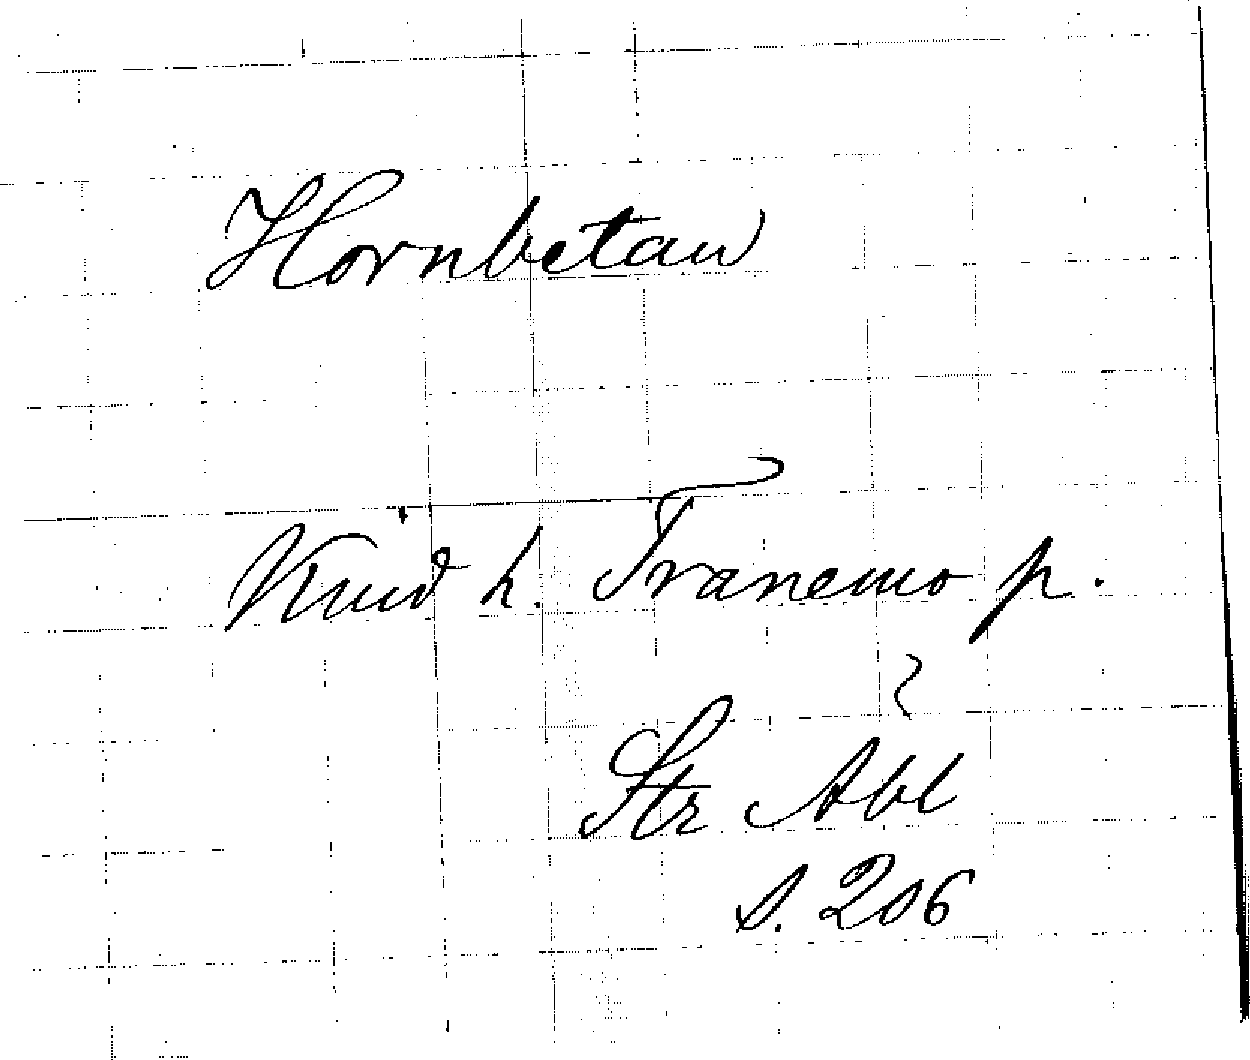 Hornbetan
Kind h. Tranemo p.
Str Abl
s. 206